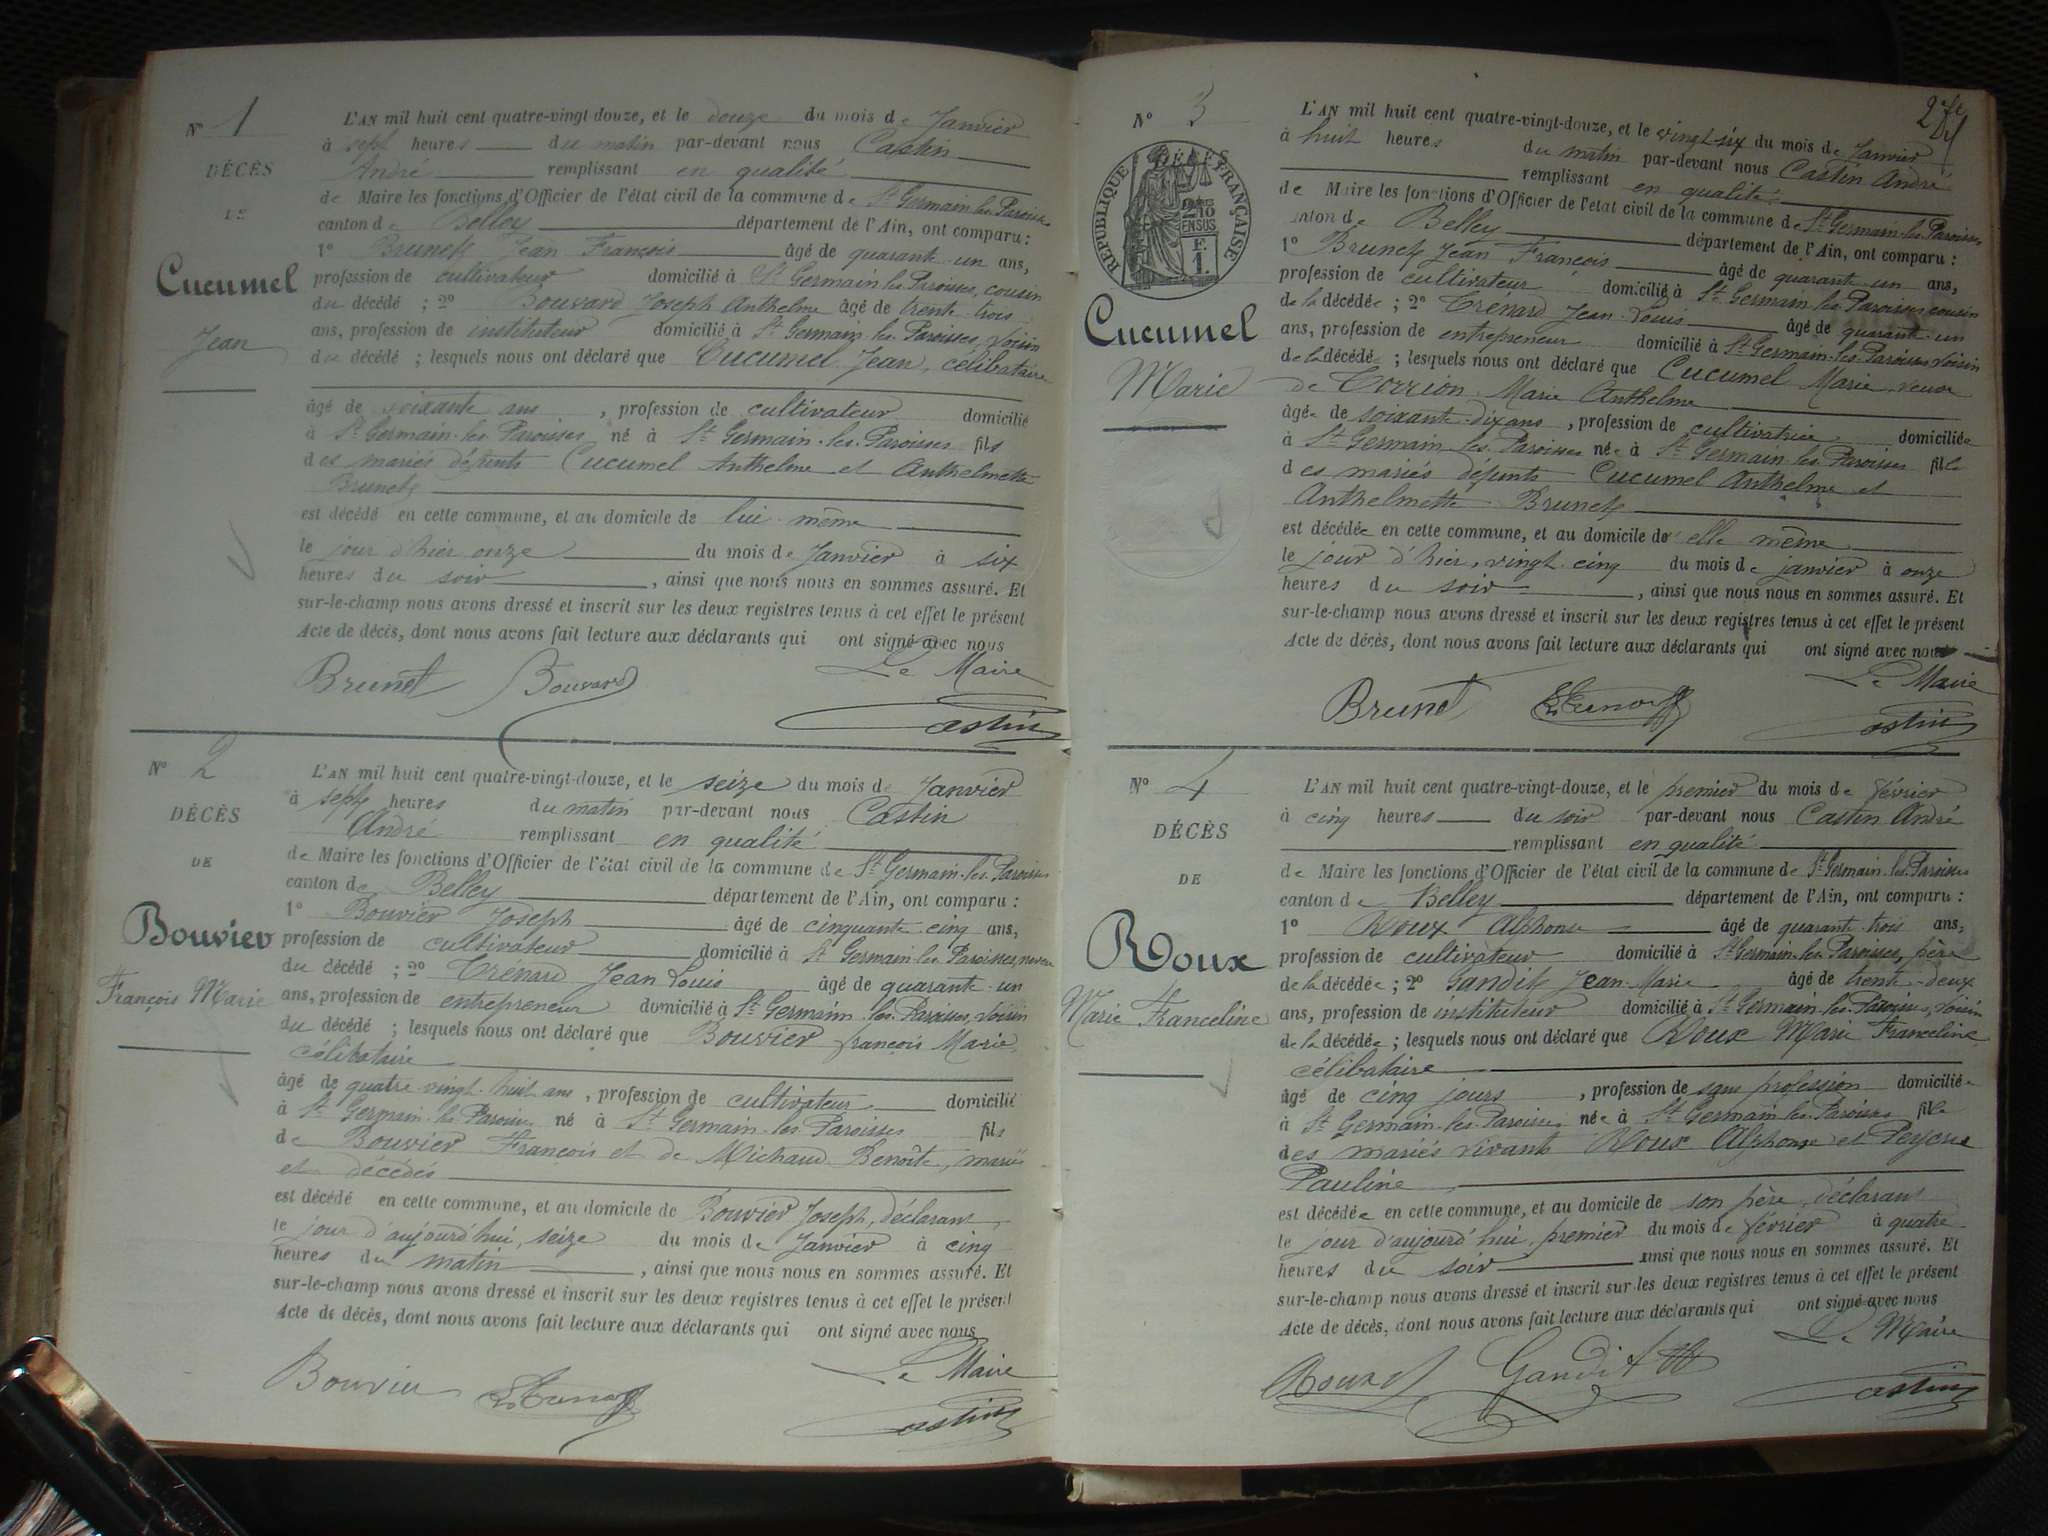 Nº 1
DÉCÈS
DE
Cucumel
Jean
L'AN mil huit cent quatre-vingt douze, et le douze du mois de Janvier
à sept heures du matin par-devant nous Castin
André remplissant en qualité
de Maire les fonctions d'Officier de l'état civil de la commune de St Germain-les-Paroisses
canton de Belley département de l'Ain, ont comparu :
1º Brunet Jean François âgé de quarante-un ans,
profession de cultivateur domicilié à St Germain-les-Paroisses, cousin
du décédé ; 2º Bouvard Joseph Anthelme âgé de trente-trois
ans, profession de instituteur domicilié à St Germain-les-Paroisses, voisin
du décédé ; lesquels nous ont déclaré que Cucumel Jean, célibataire
âgé de soixante ans , profession de cultivateur domicilié
à St Germain-les-Paroisses né à St Germain-les-Paroisses fils
des mariés défunts Cucumel Anthelme et Anthelmette
Brunet
est décédé en cette commune, et au domicile de lui-même
le jour d'hier onze du mois de Janvier à six
heures du soir , ainsi que nous nous en sommes assuré. Et
sur-le-champ nous avons dressé et inscrit sur les deux registres tenus à cet effet le présent
Acte de décès, dont nous avons fait lecture aux déclarants qui ont signé avec nous
Le Maire
Brunet Bouvard Castin
Nº 2
DÉCÈS
DE
Bouvier
François Marie
L'AN mil huit cent quatre-vingt-douze, et le seize du mois de Janvier
à sept heures du matin par-devant nous Castin
André remplissant en qualité
de Maire les fonctions d'Officier de l'état civil de la commune de St Germain-les-Paroisses
canton de Belley département de l'Ain, ont comparu :
1º Bouvier Joseph âgé de cinquante-cinq ans,
profession de cultivateur domicilié à St Germain-les-Paroisses, neveu
du décédé ; 2º Trénard Jean Louis âgé de quarante-un
ans, profession de entrepreneur domicilié à St Germain-les-Paroisses, voisin
du décédé ; lesquels nous ont déclaré que Bouvier François Marie,
célibataire
âgé de quatre-vingt-huit ans , profession de cultivateur domicilié
à St Germain-les-Paroisses né à St Germain-les-Paroisses fils
de Bouvier François et de Michaud Benoîte, mariés
et décédés
est décédé en cette commune, et au domicile de Bouvier Joseph, déclarant,
le jour d'aujourd'hui, seize du mois de Janvier à cinq
heures du matin , ainsi que nous nous en sommes assuré. Et
sur-le-champ nous avons dressé et inscrit sur les deux registres tenus à cet effet le présent
Acte de décès, dont nous avons fait lecture aux déclarants qui ont signé avec nous
Le Maire
Bouvier Castin
Nº 3
RÉPUBLIQUE FRANÇAISE
2/10 EN SUS
F. 1.
Cucumel
Marie
L'AN mil huit cent quatre-vingt-douze, et le vingt-six du mois de Janvier
à huit heures du matin par-devant nous Castin André
remplissant en qualité
de Maire les fonctions d'Officier de l'état civil de la commune de St Germain-les-Paroisses
canton de Belley département de l'Ain, ont comparu :
1º Brunet Jean François âgé de quarante-un ans,
profession de cultivateur domicilié à St Germain-les-Paroisses, cousin
de la décédée ; 2º Trénard Jean-Louis âgé de quarante-un
ans, profession de entrepreneur domicilié à St Germain-les-Paroisses, voisin
de la décédée ; lesquels nous ont déclaré que Cucumel Marie, veuve
de Marie Anthelme
âgée de soixante-dix ans , profession de cultivatrice domiciliée
à St Germain-les-Paroisses née à St Germain-les-Paroisses fille
des mariés défunts Cucumel Anthelme et
Anthelmette Brunet
est décédée en cette commune, et au domicile d'elle-même
le jour d'hier, vingt-cinq du mois de janvier à onze
heures du soir , ainsi que nous nous en sommes assuré. Et
sur-le-champ nous avons dressé et inscrit sur les deux registres tenus à cet effet le présent
Acte de décès, dont nous avons fait lecture aux déclarants qui ont signé avec nous
Le Maire
Brunet Castin
Nº 4
DÉCÈS
DE
Roux
Marie Franceline
L'AN mil huit cent quatre-vingt-douze, et le premier du mois de février
à cinq heures du soir par-devant nous Castin André
remplissant en qualité
de Maire les fonctions d'Officier de l'état civil de la commune de St Germain-les-Paroisses
canton de Belley département de l'Ain, ont comparu :
1º Roux Alphonse âgé de quarante-trois ans,
profession de cultivateur domicilié à St Germain-les-Paroisses, père
de la décédée ; 2º Gandit Jean-Marie âgé de trente-deux
ans, profession de instituteur domicilié à St Germain-les-Paroisses, voisin
de la décédée ; lesquels nous ont déclaré que Roux Marie Franceline
célibataire
âgé de cinq jours , profession de sans profession domiciliée
à St Germain-les-Paroisses née à St Germain-les-Paroisses fille
des mariés vivants Roux Alphonse et
Pauline
est décédée en cette commune, et au domicile de son père, déclarant
le jour d'aujourd'hui, premier du mois de février à quatre
heures du soir ainsi que nous nous en sommes assuré. Et
sur-le-champ nous avons dressé et inscrit sur les deux registres tenus à cet effet le présent
Acte de décès, dont nous avons fait lecture aux déclarants qui ont signé avec nous
Le Maire
Roux Gandit Castin